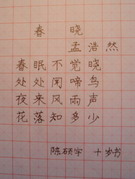 春 晓
孟浩然
春眠不觉晓
处处闻啼鸟
夜来风雨声
花落知多少
陈硕宇 十岁书